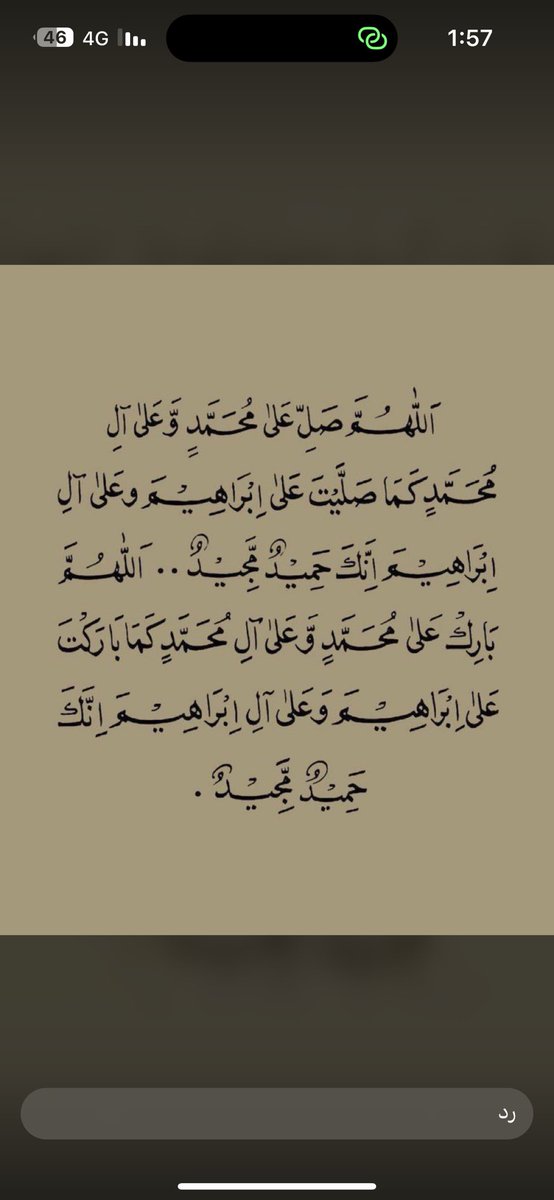 46 4G 1:57
اَللّٰهُمَّ صَلِّ عَلىٰ مُحَمَّدٍ وَّعَلىٰ آلِ
مُحَمَّدٍ كَمَا صَلَّيْتَ عَلىٰ اِبْرَاهِيْمَ وعَلىٰ آلِ
اِبْرَاهِيْمَ اِنَّكَ حَمِيْدٌ مَّجِيْدٌ .. اَللّٰهُمَّ
بَارِكْ عَلىٰ مُحَمَّدٍ وَّعَلىٰ آلِ مُحَمَّدٍ كَمَا بَارَكْتَ
عَلىٰ اِبْرَاهِيْمَ وَعَلىٰ آلِ اِبْرَاهِيْمَ اِنَّكَ
حَمِيْدٌ مَّجِيْدٌ .
رد